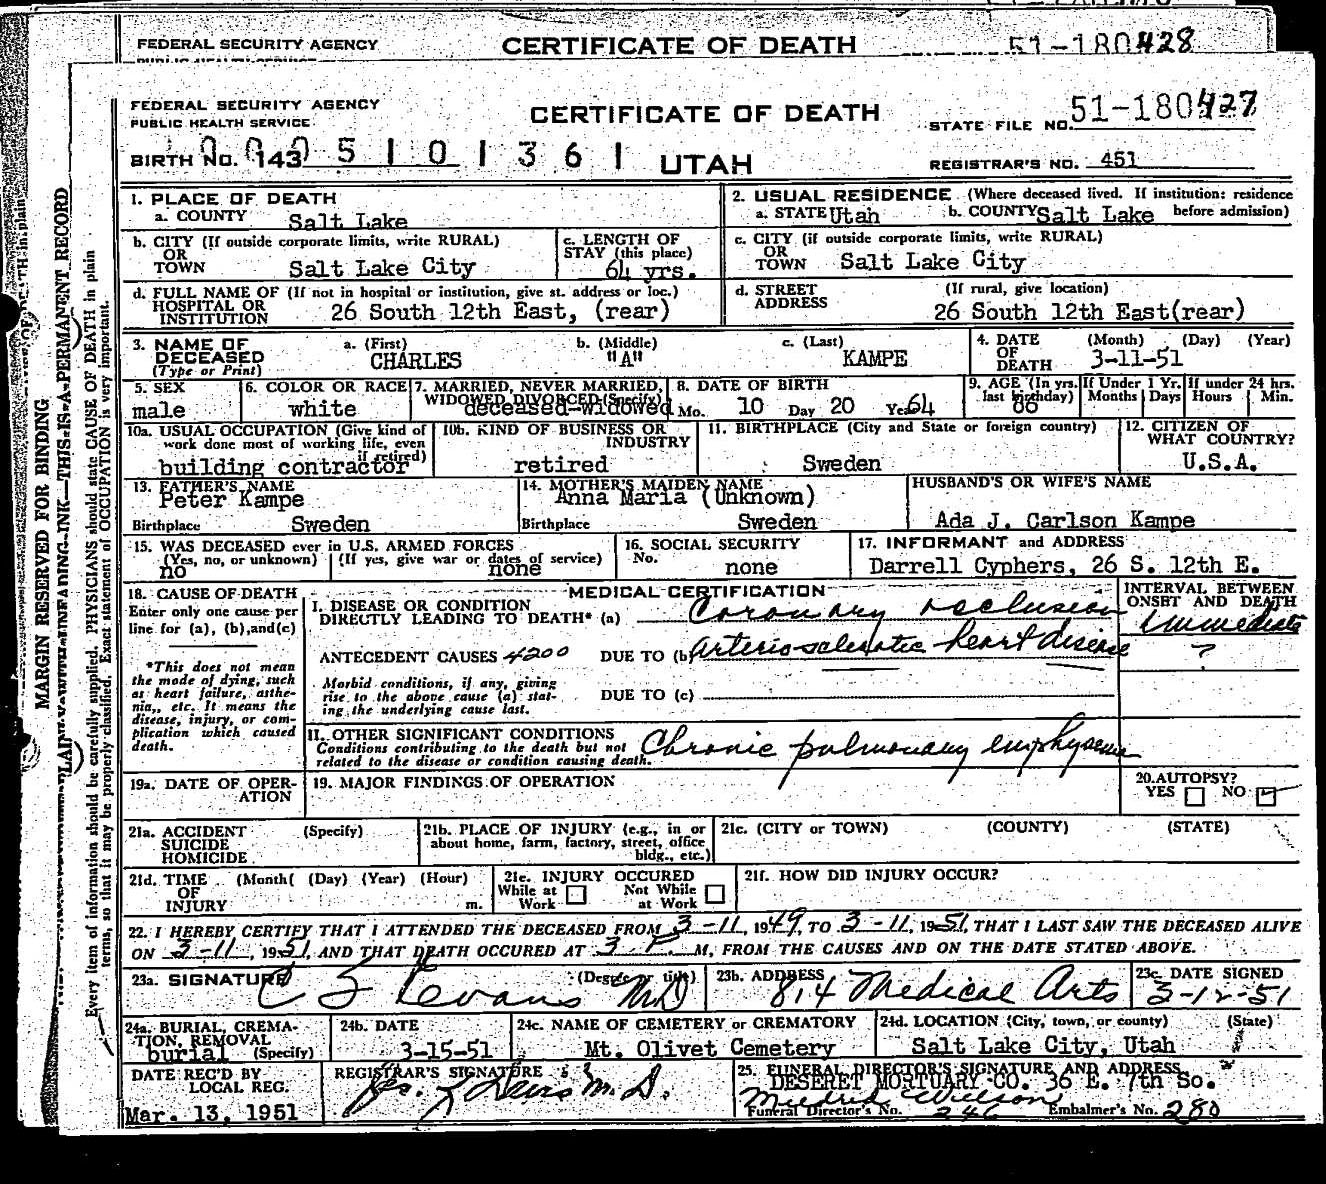 FEDERAL SECURITY AGENCY CERTIFICATE OF DEATH 51-180428
FEDERAL SECURITY AGENCY
PUBLIC HEALTH SERVICE
CERTIFICATE OF DEATH
STATE FILE NO. 51-180427
BIRTH NO. 143 510 1361 UTAH REGISTRAR'S NO. 451
1. PLACE OF DEATH
a. COUNTY Salt Lake
2. USUAL RESIDENCE (Where deceased lived. If institution: residence before admission)
a. STATE Utah b. COUNTY Salt Lake
b. CITY (If outside corporate limits, write RURAL)
OR
TOWN Salt Lake City
c. LENGTH OF
STAY (this place)
64 yrs.
c. CITY (if outside corporate limits, write RURAL)
OR
TOWN Salt Lake City
d. FULL NAME OF (If not in hospital or institution, give st. address or loc.)
HOSPITAL OR
INSTITUTION 26 South 12th East, (rear)
d. STREET (If rural, give location)
ADDRESS 26 South 12th East(rear)
3. NAME OF DECEASED
(Type or Print)
a. (First) b. (Middle) c. (Last)
CHARLES "A" KAMPE
4. DATE OF DEATH (Month) (Day) (Year)
3-11-51
5. SEX
male
6. COLOR OR RACE
white
7. MARRIED, NEVER MARRIED,
WIDOWED DIVORCED (Specify)
deceased-widowed
8. DATE OF BIRTH
Mo. 10 Day 20 Year 64
9. AGE (In yrs. last birthday)
86
If Under 1 Yr. Months Days
If under 24 hrs. Hours Min.
10a. USUAL OCCUPATION (Give kind of
work done most of working life, even
if retired)
building contractor
10b. KIND OF BUSINESS OR
INDUSTRY
retired
11. BIRTHPLACE (City and State or foreign country)
Sweden
12. CITIZEN OF
WHAT COUNTRY?
U.S.A.
13. FATHER'S NAME
Peter Kampe
Birthplace Sweden
14. MOTHER'S MAIDEN NAME
Anna Maria (Unknown)
Birthplace Sweden
HUSBAND'S OR WIFE'S NAME
Ada J. Carlson Kampe
15. WAS DECEASED ever in U.S. ARMED FORCES
(Yes, no, or unknown) (If yes, give war or dates of service)
no none
16. SOCIAL SECURITY
No. none
17. INFORMANT and ADDRESS
Darrell Cyphers, 26 S. 12th E.
18. CAUSE OF DEATH
Enter only one cause per
line for (a), (b), and (c)
*This does not mean
the mode of dying, such
as heart failure, asthe-
nia,, etc. It means the
disease, injury, or com-
plication which caused
death.
MEDICAL CERTIFICATION
INTERVAL BETWEEN
ONSET AND DEATH
I. DISEASE OR CONDITION
DIRECTLY LEADING TO DEATH* (a) Coronary occlusion immediate
ANTECEDENT CAUSES 4200 DUE TO (b) Arterio-sclerotic heart disease ?
Morbid conditions, if any, giving
rise to the above cause (a) stat-
ing the underlying cause last.
DUE TO (c)
II. OTHER SIGNIFICANT CONDITIONS
Conditions contributing to the death but not
related to the disease or condition causing death.
Chronic pulmonary emphysema
19a. DATE OF OPER-
ATION
19. MAJOR FINDINGS OF OPERATION
20. AUTOPSY?
YES NO
21a. ACCIDENT (Specify)
SUICIDE
HOMICIDE
21b. PLACE OF INJURY (e.g., in or
about home, farm, factory, street, office
bldg., etc.)
21c. (CITY or TOWN) (COUNTY) (STATE)
21d. TIME (Month( (Day) (Year) (Hour)
OF
INJURY m.
21e. INJURY OCCURED
While at Work Not While at Work
21f. HOW DID INJURY OCCUR?
22. I HEREBY CERTIFY THAT I ATTENDED THE DECEASED FROM 3-11, 1949, TO 3-11, 1951, THAT I LAST SAW THE DECEASED ALIVE
ON 3-11, 1951, AND THAT DEATH OCCURED AT 3 P M, FROM THE CAUSES AND ON THE DATE STATED ABOVE.
23a. SIGNATURE (Degree or title)
C S Evans MD
23b. ADDRESS
814 Medical Arts
23c. DATE SIGNED
3-12-51
24a. BURIAL, CREMA-
TION, REMOVAL
(Specify)
burial
24b. DATE
3-15-51
24c. NAME OF CEMETERY or CREMATORY
Mt. Olivet Cemetery
24d. LOCATION (City, town, or county) (State)
Salt Lake City, Utah
DATE REC'D BY
LOCAL REG.
Mar. 13, 1951
REGISTRAR'S SIGNATURE
M.D.
25. FUNERAL DIRECTOR'S SIGNATURE AND ADDRESS
DESERET MORTUARY CO. 36 E. 7th So.
Mildred Wilson
Funeral Director's No. 246 Embalmer's No. 280
MARGIN RESERVED FOR BINDING
THIS IS A PERMANENT RECORD
Every item of information should be carefully supplied. PHYSICIANS should state CAUSE OF DEATH in plain
terms, so that it may be properly classified. Exact statement of OCCUPATION is very important.